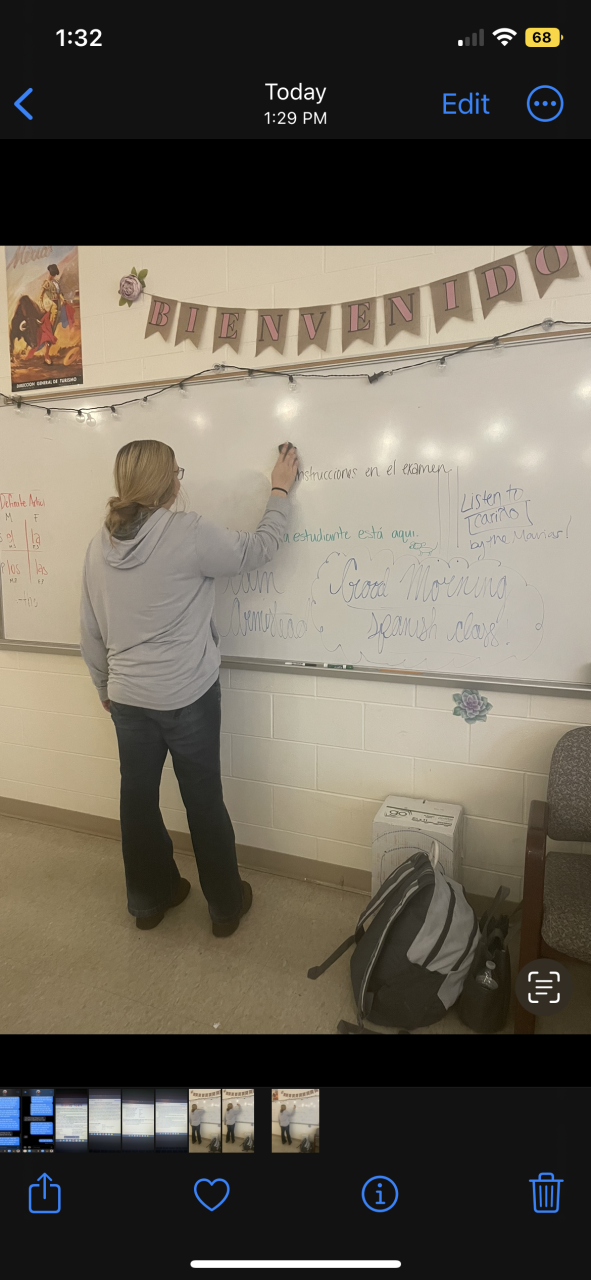 1:32
68
Today
1:29 PM
Edit
México
DIRECCION GENERAL DE TURISMO
BIENVENIDO
Definite
M F
el la
los las
nstrucciones en el examen
a estudiante está aquí.
Listen to
[cariño]
by the Marías!
Good Morning
Spanish class!